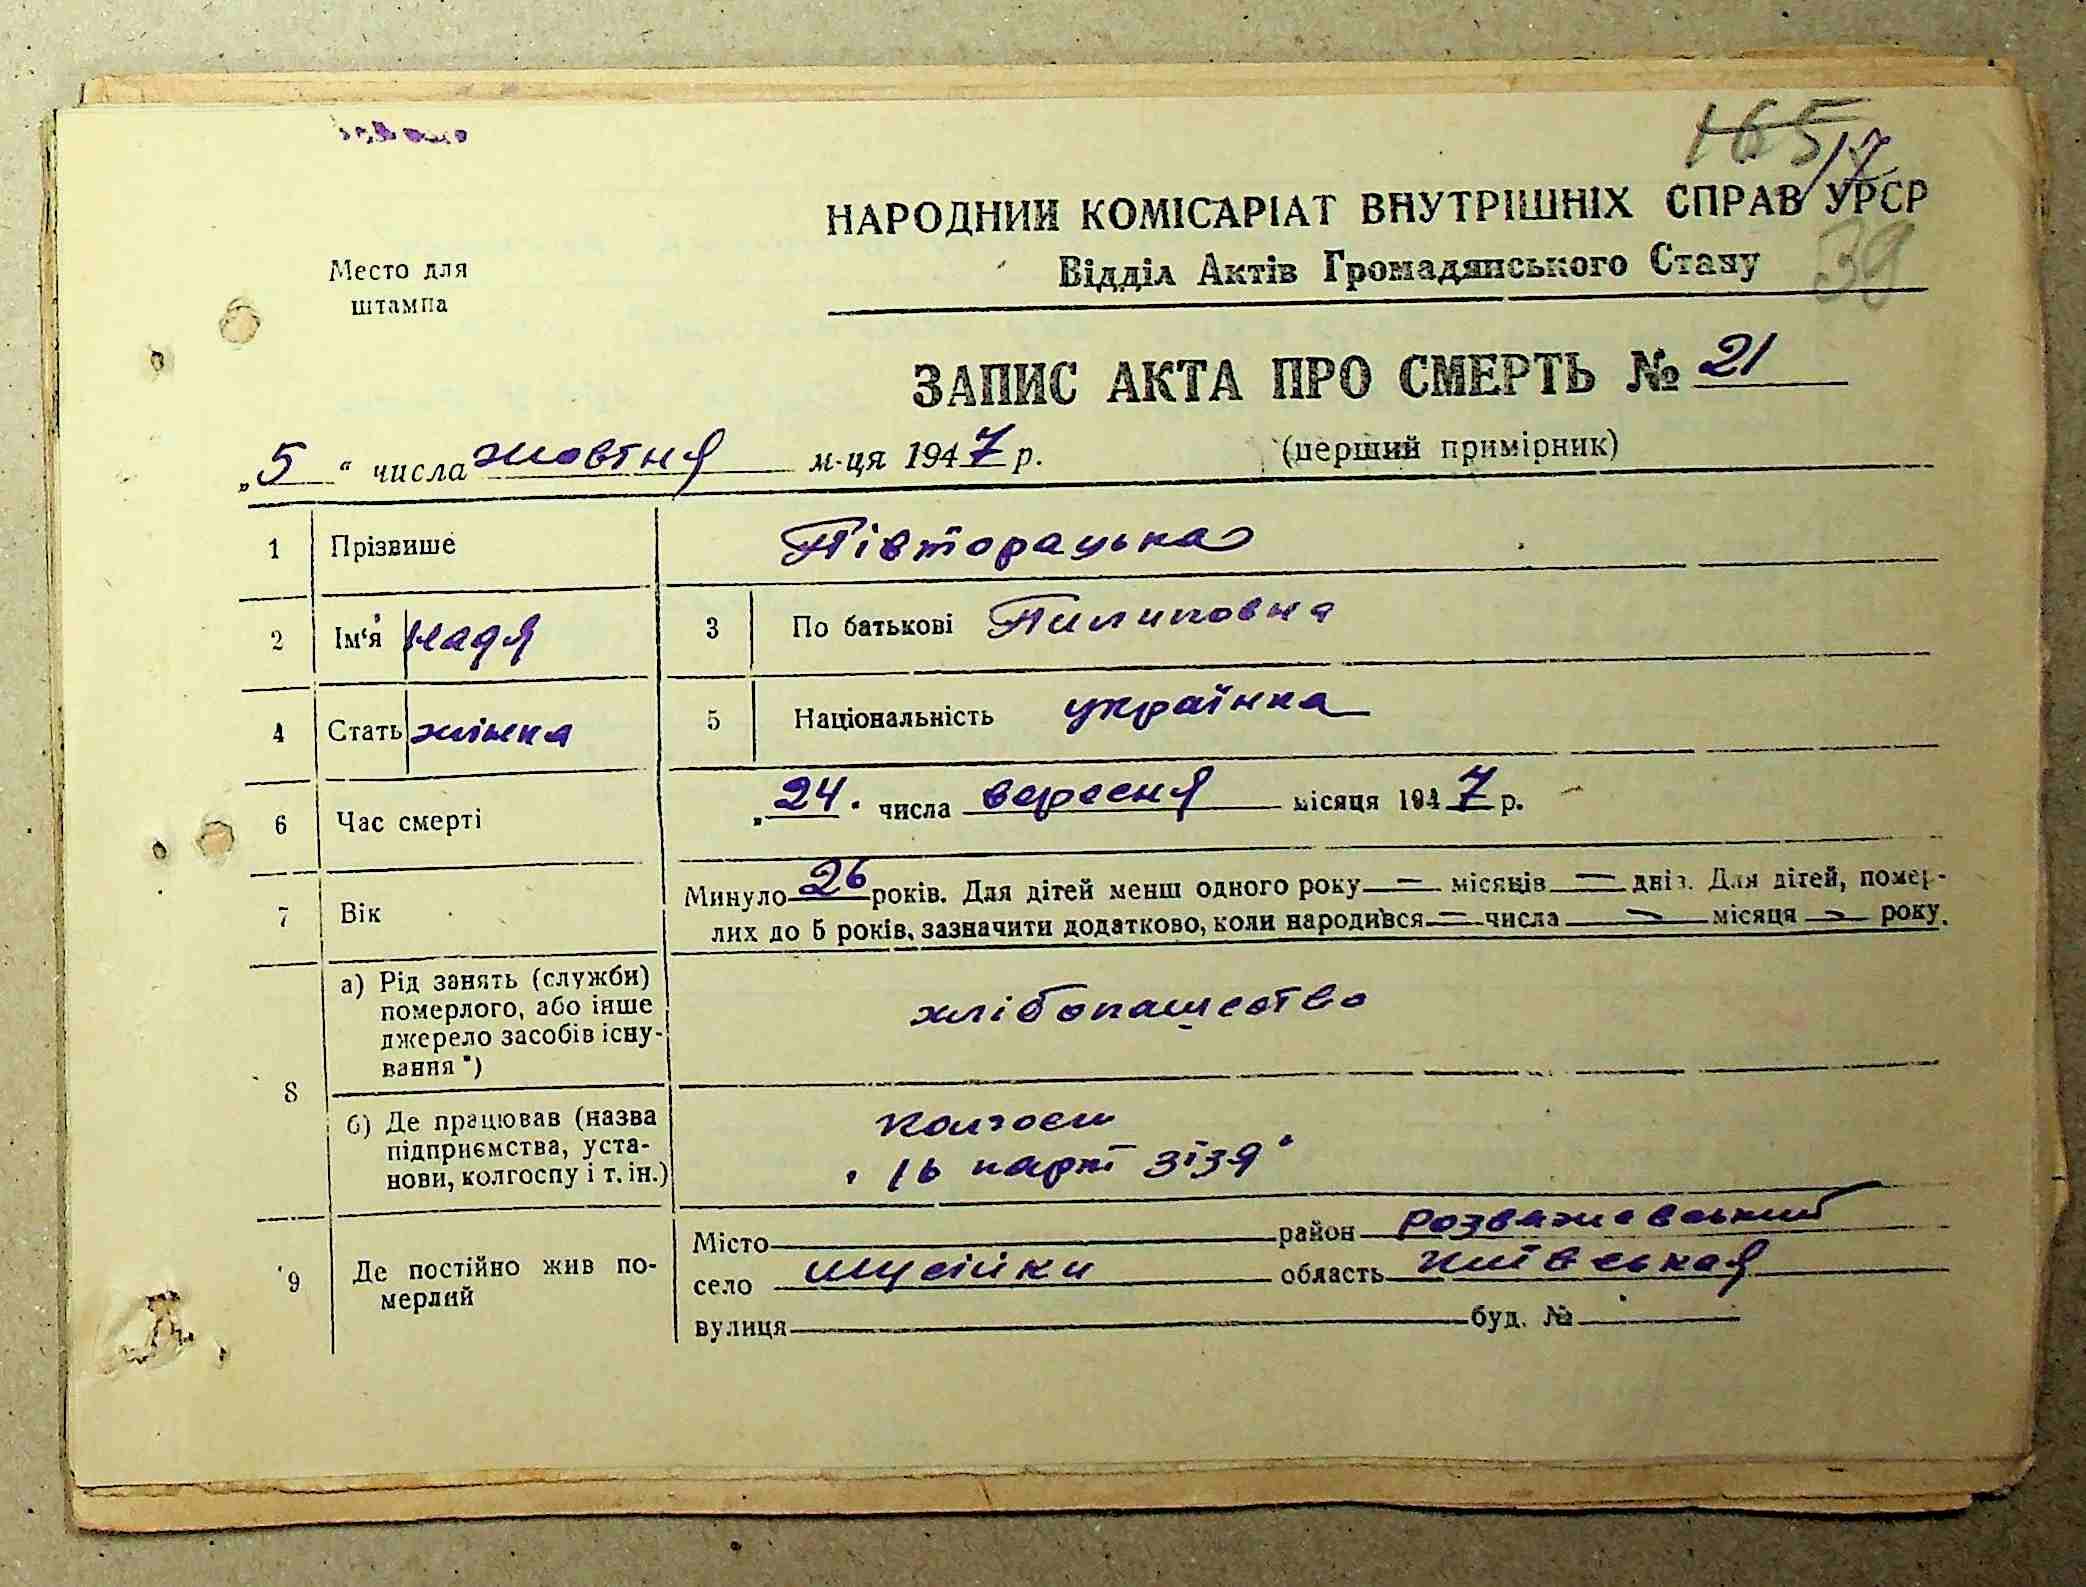 165/7
НАРОДНИЙ КОМІСАРІАТ ВНУТРІШНІХ СПРАВ УРСР
39
Відділ Актів Громадянського Стану
Место для
штампа
ЗАПИС АКТА ПРО СМЕРТЬ № 21
„5“ числа жовтня м-ця 1947 р. (перший примірник)
1 Прізвише Півторацька
2 Ім'я Надя 3 По батькові Пилиповна
4 Стать жінка 5 Національність українка
6 Час смерті „24. числа вересня місяця 1947 р.
7 Вік Минуло 26 років. Для дітей менш одного року — місяців — днів. Для дітей, помер-
лих до 5 років, зазначити додатково, коли народився — числа — місяця — року.
8 а) Рід занять (служби)
померлого, або інше
джерело засобів існу-
вання *)
хлібопашество
б) Де працював (назва
підприємства, уста-
нови, колгоспу і т. ін.)
колгосп
„16 парт зізя“
9 Де постійно жив по-
мерлий
Місто район Розважевський
село Мусійки область Київськая
вулиця буд. №